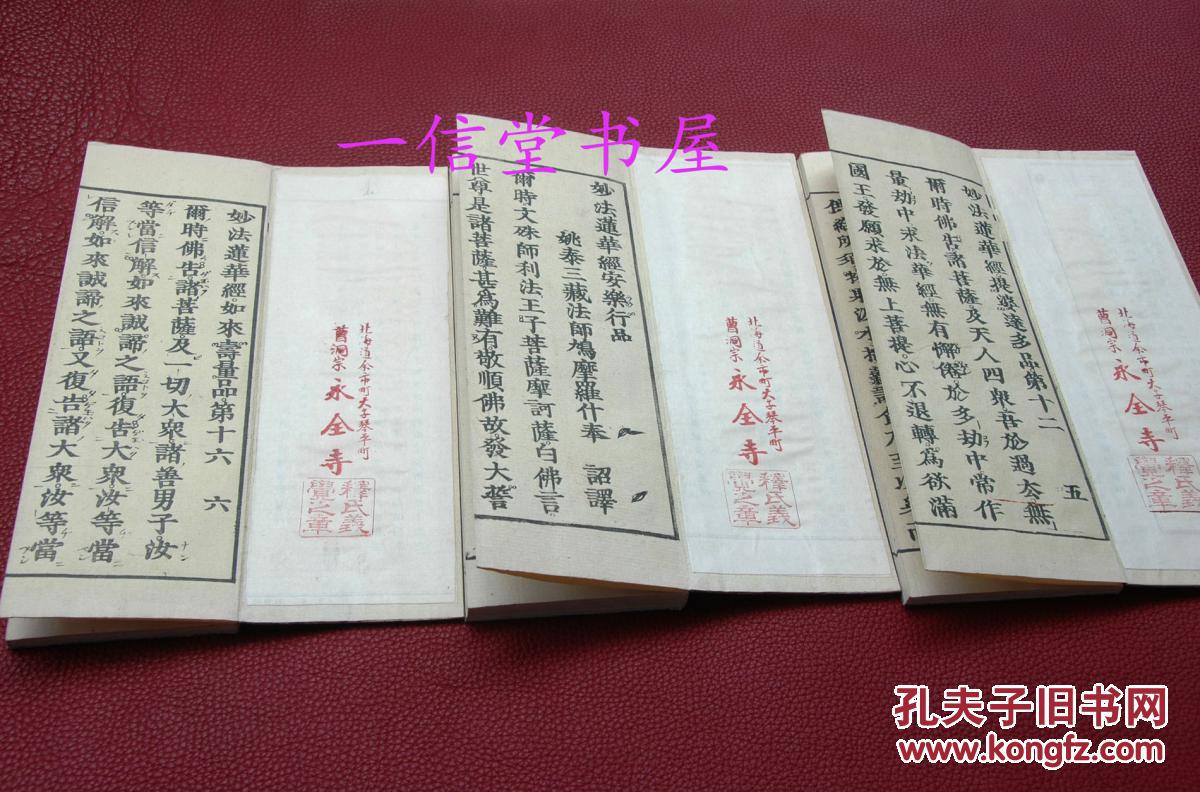 一信堂书屋
妙法蓮華經提婆達多品第十二 五
爾時佛告諸菩薩及天人四衆吾於過去無
量劫中求法華經無有懈倦於多劫中常作
國王發願求於無上菩提心不退轉爲欲滿
北海道余市町大字琴平町
曹洞宗 永全寺
釋氏義
妙法蓮華經安樂行品
姚秦三藏法師鳩摩羅什奉 詔譯
爾時文殊師利法王子菩薩摩訶薩白佛言
世尊是諸菩薩甚爲難有敬順佛故發大誓
北海道余市町大字琴平町
曹洞宗 永全寺
釋氏義
之章
妙法蓮華經如來壽量品第十六 六
爾時佛告諸菩薩及一切大衆諸善男子汝
等當信解如來誠諦之語復告大衆汝等當
信解如來誠諦之語又復告諸大衆汝等當
北海道余市町大字琴平町
曹洞宗 永全寺
釋氏義
之章
孔夫子旧书网
www.kongfz.com